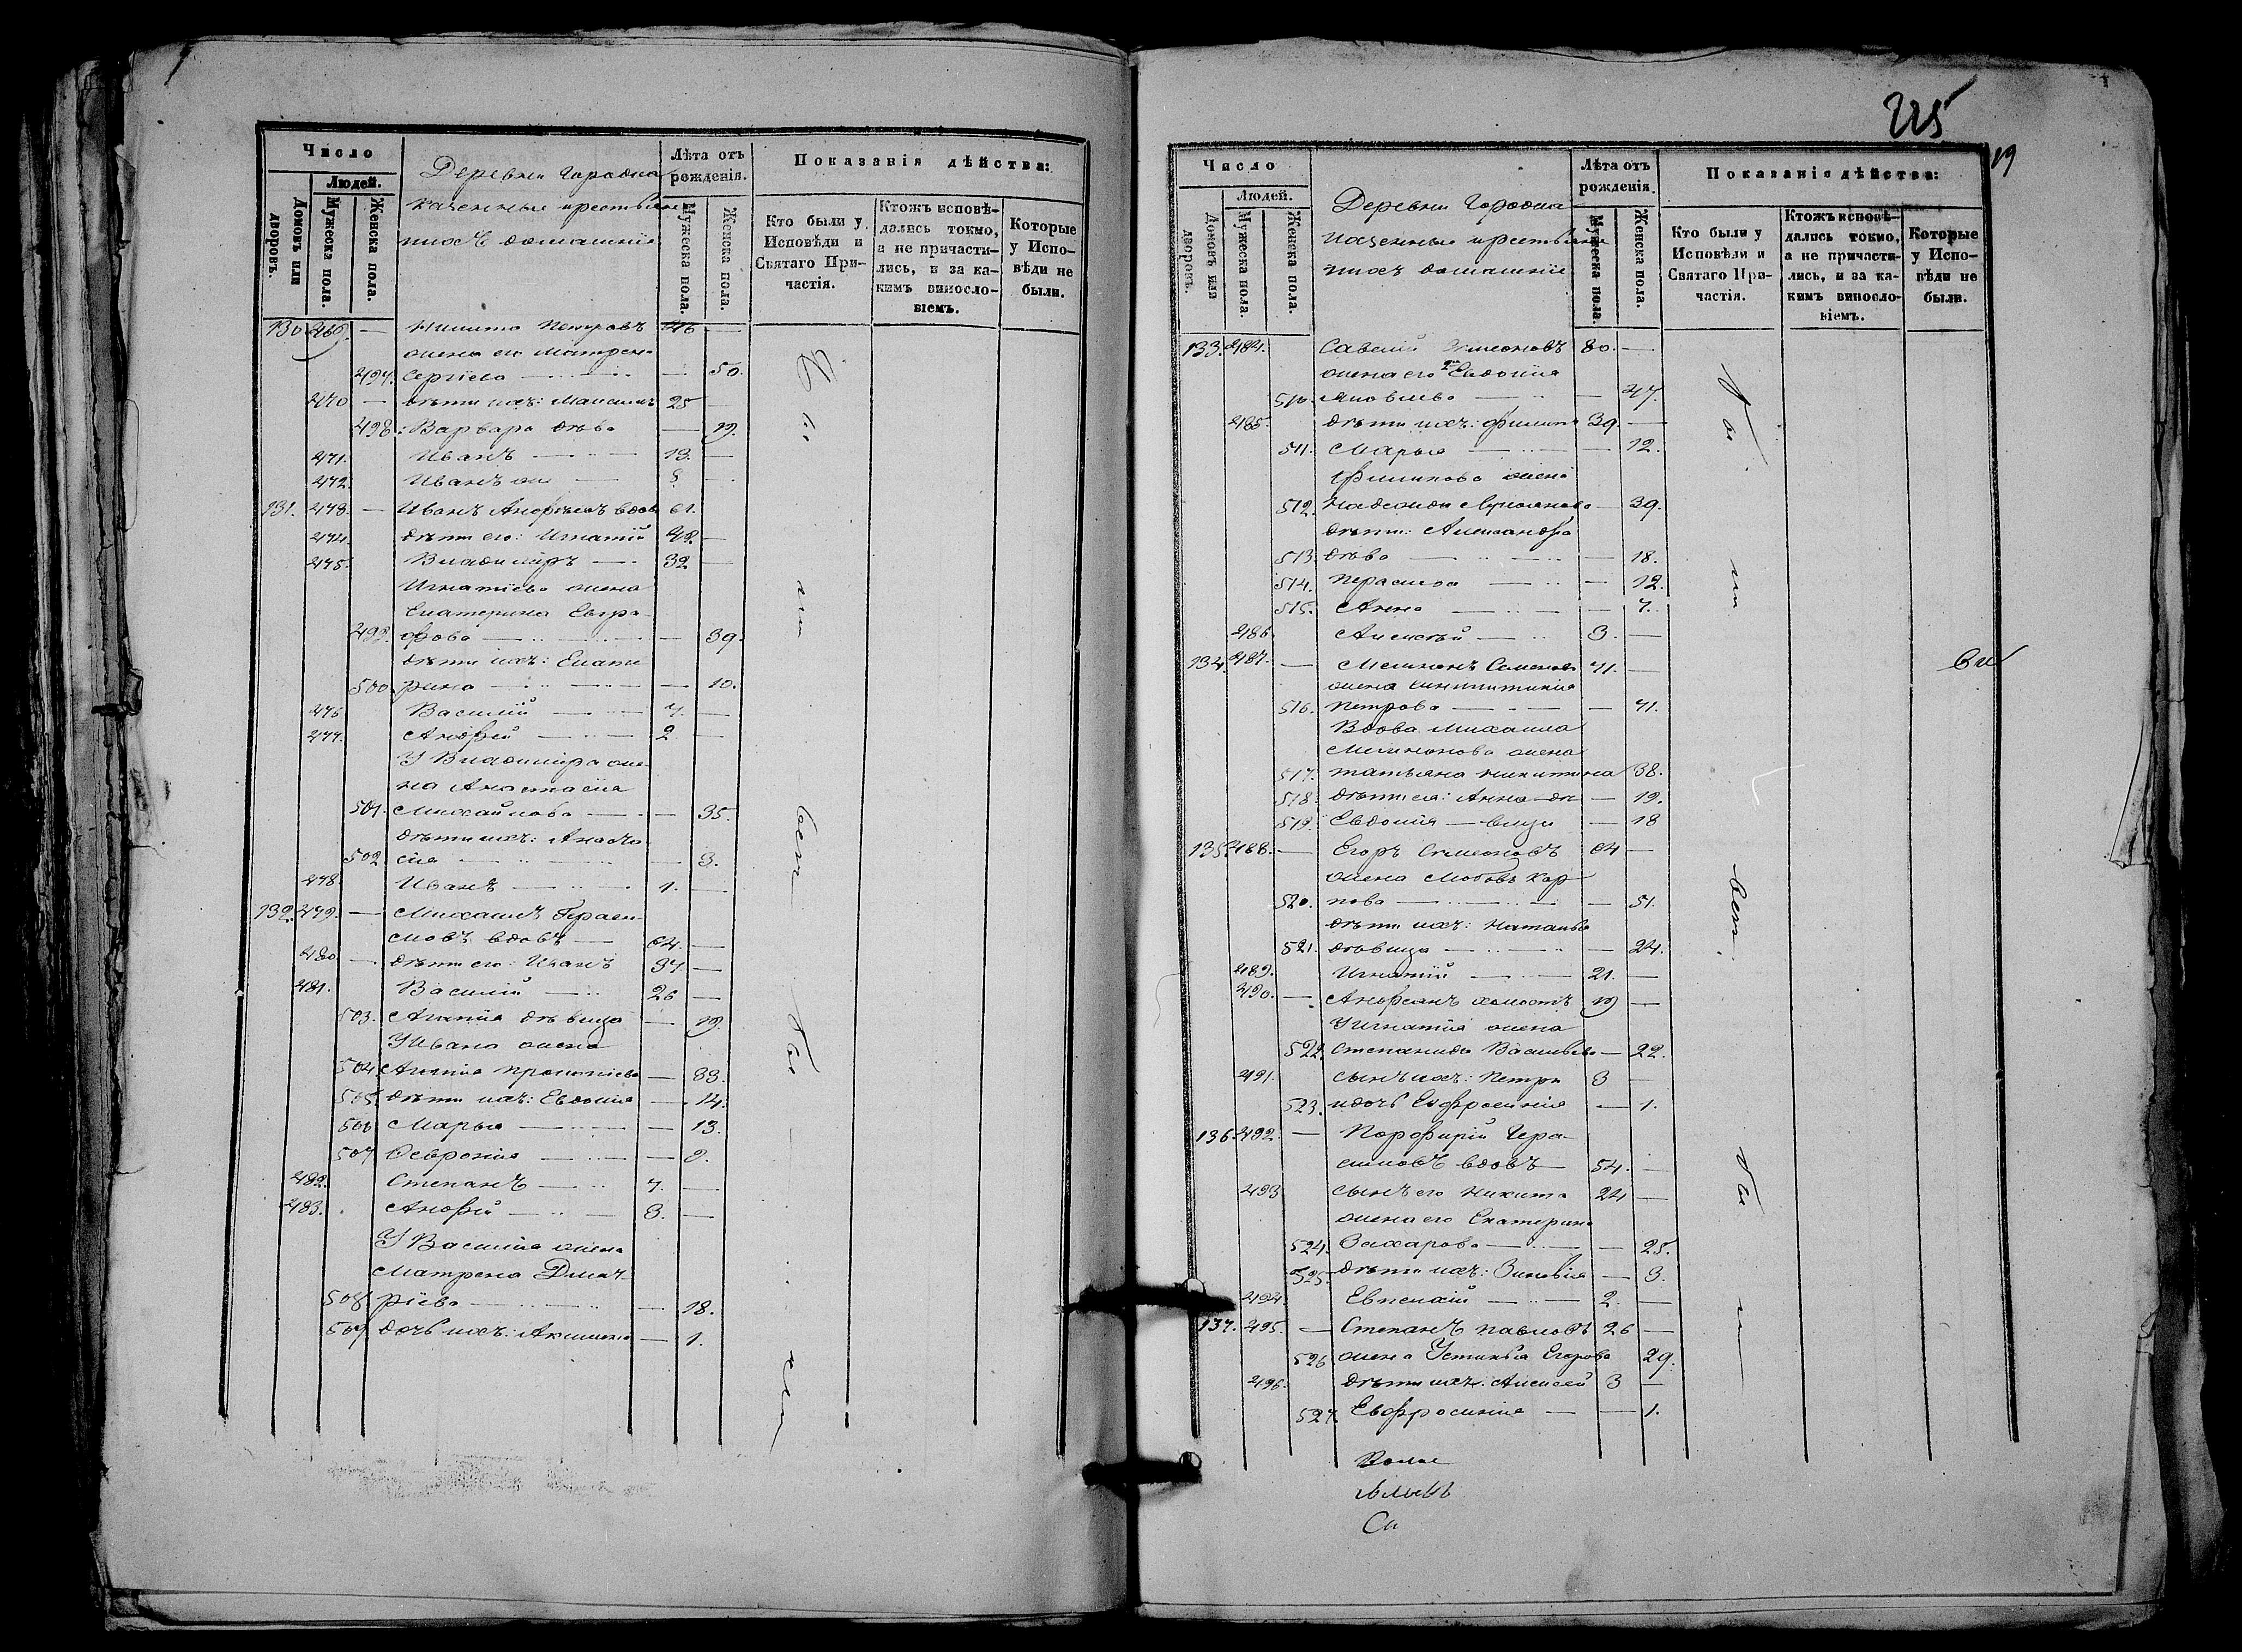 Число
Людей.
Домовъ или дворовъ.
Мужеска пола.
Женска пола.
Деревни Городна
казенные крестьяне
ихъ домашніе
Лѣта отъ рожденія.
Мужеска пола.
Женска пола.
Показанія дѣйства:
Кто были у Исповѣди и Святаго Причастія.
Ктожъ исповѣ-
дались токмо,
а не причасти-
лись, и за ка-
кимъ винosло-
віемъ.
Которые
у Испо-
вѣди не
были.
130 469. — Никита Петровъ 46 —
жена его Матрена
497. Сергіева — 50.
470 — дѣти ихъ: Максимъ 25 —
498. Варвара дѣва — 19.
471. Иванъ — 13. —
472. Иванъ же — 8 —
131. 473. — Иванъ Андреевъ вдов 61.
474. дѣти его: Игнатій 42. —
475. Владиміръ — 32 —
Игнатіева жена
Екатерина Евгра-
499. фова — 39.
дѣти ихъ: Екате
500 рина — 10.
476 Василій — 7. —
477. Андрей — 2 —
У Владиміра же-
на Анастасія
501. Михайлова — 35.
дѣти ихъ: Анаста
502 сія — 3.
478. Иванъ — 1. —
132. 479. — Михаилъ Гераси-
мовъ вдовъ — 64. —
480. — дѣти его: Иванъ 37. —
481. Василій — 26 —
503. Агапія дѣвица — 19.
У Ивана жена
504. Прокопіева — 33.
505. дѣти ихъ: Евдокія — 14.
506 Марья — 13.
507 Февронія — 9.
482. Степанъ — 7. —
483. Андрей — 3. —
У Василія жена
Матрена Дмит-
508 ріева — 18.
509 дочь ихъ: Акилина — 1.
Бы
ли
вси
Бы
ли
225
19
Число
Людей.
Домовъ или дворовъ.
Мужеска пола.
Женска пола.
Деревни Городна
казенные крестьяне
ихъ домашніе
Лѣта отъ рожденія.
Мужеска пола.
Женска пола.
Показанія дѣйства:
Кто были у Исповѣди и Святаго Причастія.
Ктожъ исповѣ-
дались токмо,
а не причасти-
лись, и за ка-
кимъ виносло-
віемъ.
Которые
у Испо-
вѣди не
были.
133. 484. Савелій Симеоновъ 80. —
жена его Евдокія
510. Яковлева — 47.
485. дѣти ихъ: Филипъ 39 —
511. Марья — 12.
Филипова жена
512. Лукіанова — 39.
дѣти: Александра
513. дѣва — 18.
514. Параскева — 12.
515. Анна — 7.
486. Алексѣй — 3. —
134. 487. — Семеновъ 71. —
жена Синклитикія
516. Петрова — 71.
Вдова Михаила
жена
517. Татьяна Никитина 38.
518. дѣти ея: Анна дѣ — 19.
519. Евдокія — вицы — 18
135. 488. — Егоръ Симеоновъ 64 —
жена Любовь Кар
520. пова — 51.
дѣти ихъ: Наталья
521. дѣвица — 24.
489. Игнатій — 21. —
490. — холостъ 19 —
У Игнатія жена
522. Степанида Васильева — 22.
491. сынъ ихъ: Петръ 3 —
523. и дочь Евфросинія — 1.
136. 492. — Порфирій Гера-
симовъ вдовъ — 54. —
493. сынъ его Никита 24 —
жена его Екатерина
524. Захарова — 25.
525. дѣти ихъ: Зиновія — 3.
494. Евпсихій — 2. —
137. 495. — Степанъ Павловъ 26 —
526 жена Устинья Егорова 29.
496. дѣти ихъ: Алексей 3 —
527. Евфросинія — 1.
Бы
ли
вси
Бы
ли